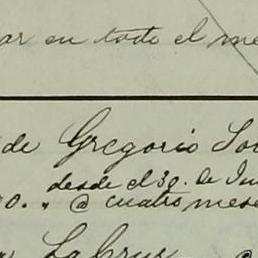 ar en todo el me
de Gregorio So
desde el 30. de Ju
0. " @ cuatro mese
La Cruz